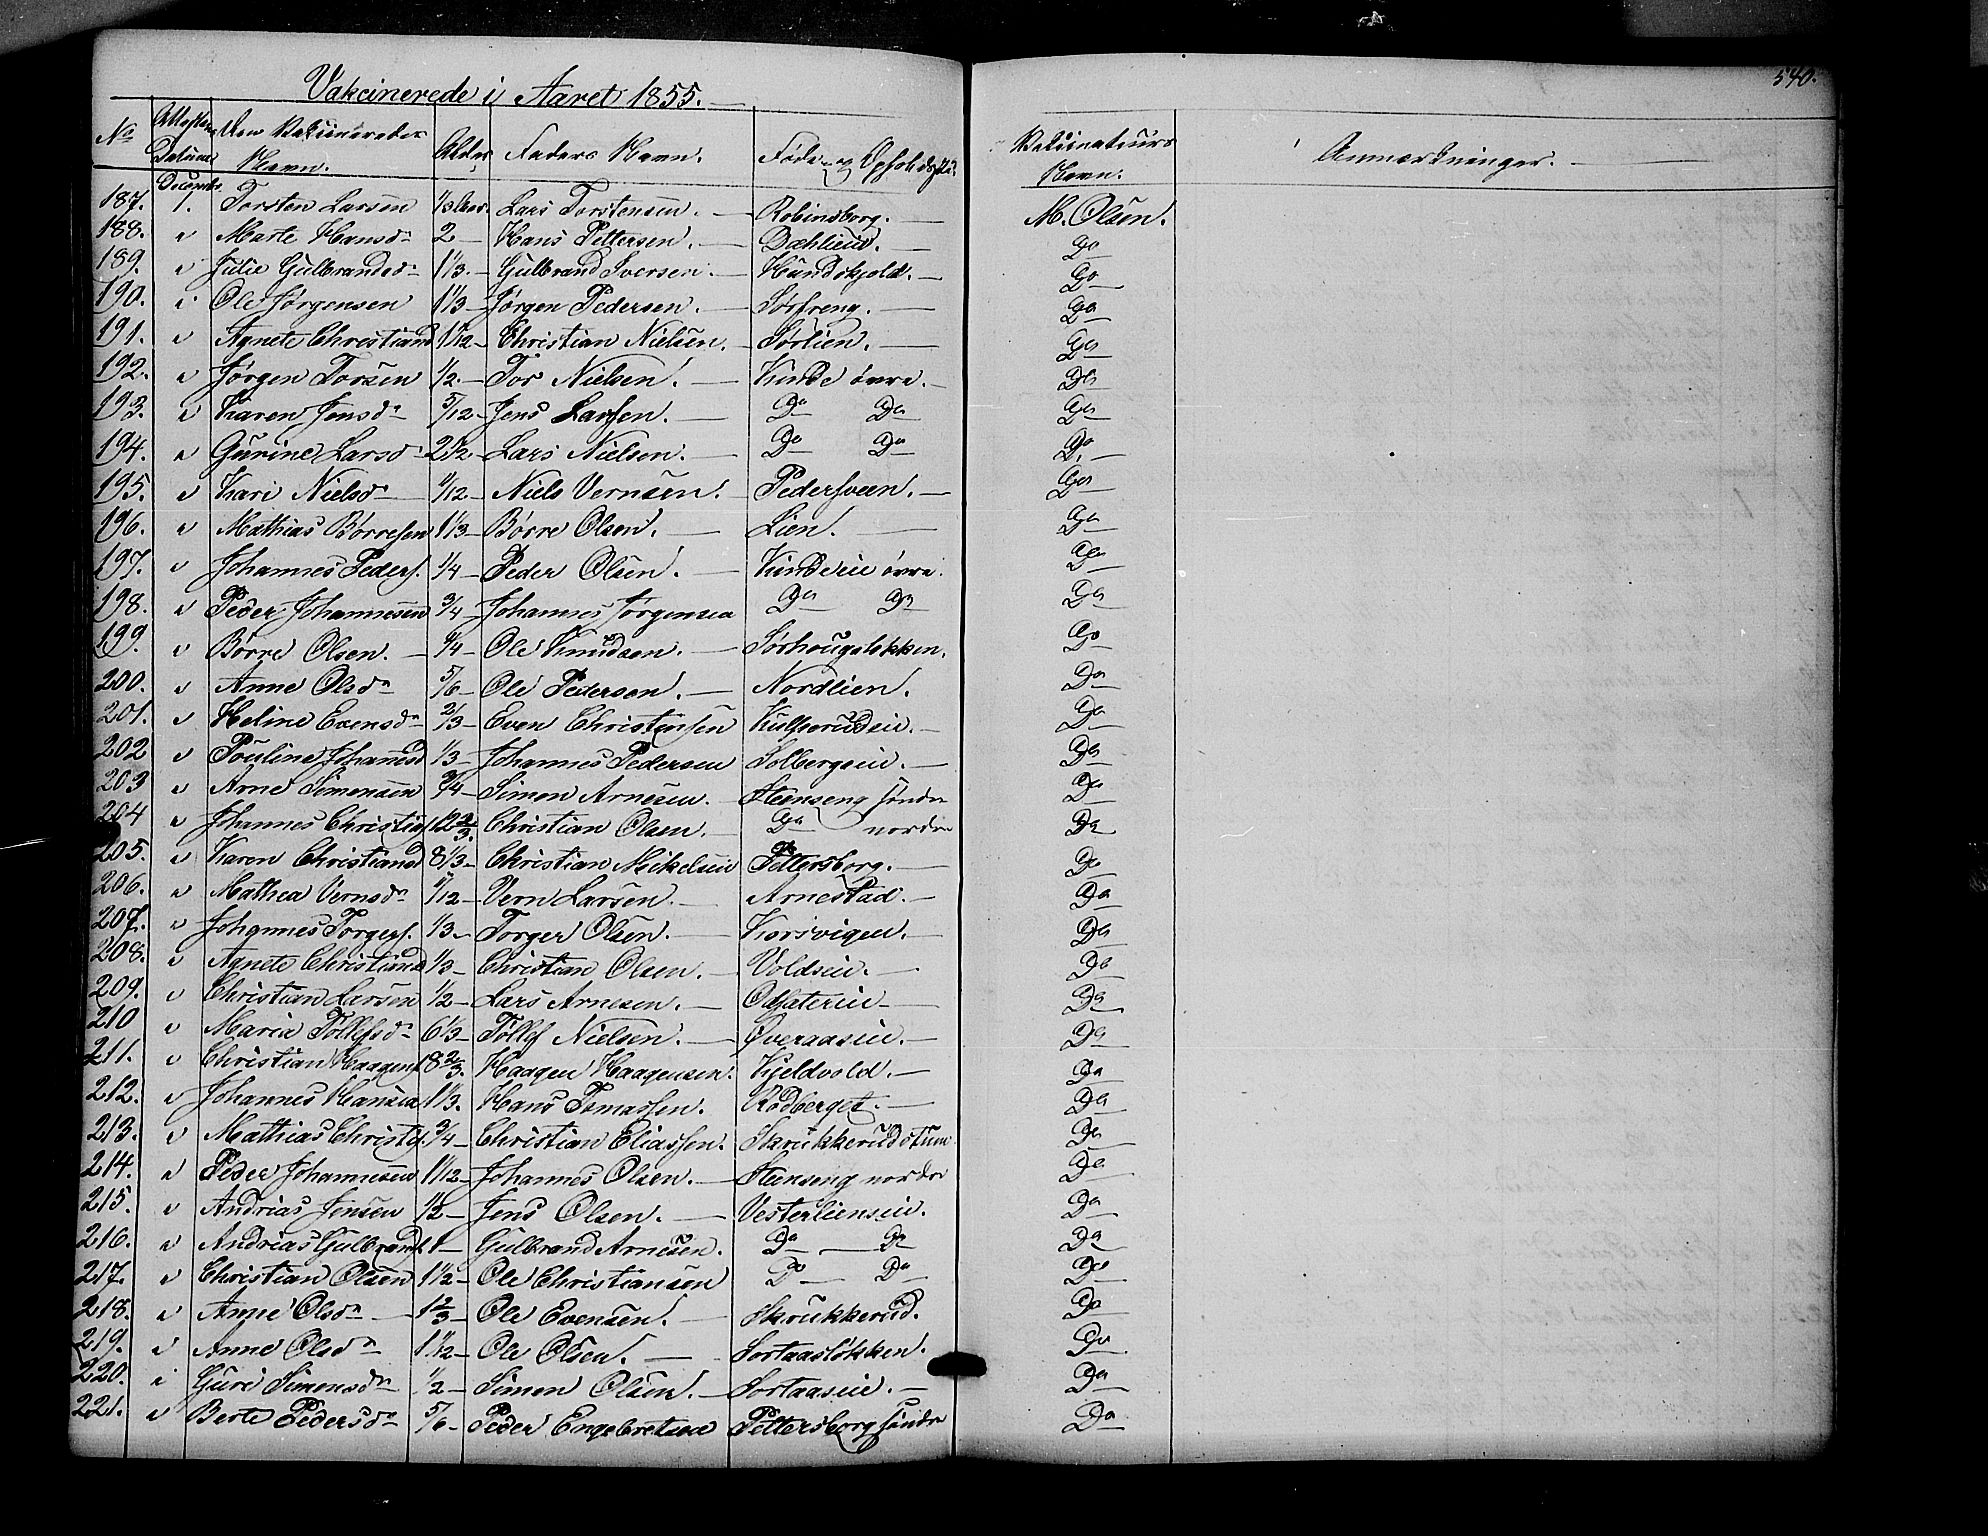 540.
Vakcinerede i Aaret 1855.
No Attestens Datum Den Vakcineredes Navn. Alder Faders Navn. Føde- og Opholdssted Vakcinateurs Navn. Anmærkninger.
Decembr.
187. 1. Torsten Larsen Lars Torstensen. Robinsborg. M. Olsen.
188. " Marte Hansdr 2 Hans Pettersen. Dæhlieie. Do
189. " Julie Gulbrandsd 1 1/3 Gulbrand Iversen. Hundskjold. Do
190. " Ole Jørgensen 1 1/3 Jørgen Pedersen. Sørfreng. Do
191. " Agnete Christiansd Christian Nielsen. Sørlien. Do
192. " Jørgen Torsen 1/2 Tor Nielsen. Kinde øvre. Do
193. " Karen Jensdr 5/12 Jens Larssen. Do Do Do
194. " Gurine Larsd 2 1/2 Lars Nielsen. Do Do Do
195. " Kari Nielsdr Niels Vernsen. Pedersveen. Do
196. " Mathias Børresen 1 1/3 Børre Olsen. Lien. Do
197. " Johannes Peders. 1/4 Peder Olsen. Kindeeie øvre. Do
198. " Peder Johannesen 3/4 Johannes Jørgensen Do Do Do
199. " Børre Olsen. Ole Knudsen. Sørhougsløkken. Do
200. " Anne Olsdr 5/6 Ole Pedersen. Nordlien. Do
201. " Heline Evensdr 2/3 Even Christensen Kulserudeie. Do
202 " Pouline Johansd 1/3 Johannes Pedersen Solbergseie. Do
203 " Arne Simensen 3/4 Simen Arnesen. Steenseng søndre Do
204 " Johannes Christia 12 2/3 Christian Olsen. Do nordre Do
205. " Karen Christiansd 8 1/3 Christian Mikelsen Pettersborg. Do
206. " Mathea Vernsdr Vern Larsen. Arnestad. Do
207. " Johannes Torgers. 1/3 Torger Olsen. Korsvigen. Do
208. " Agnete Christiansd 1/3 Christian Olsen. Voldseie. Do
209. " Christian Larsen 1/2 Lars Arnesen. Do
210 " Maria Tollefsdr 6 1/3 Tollef Nielsen. Øveraaseie. Do
211. " Christian Haagens 18 2/3. Haagen Haagensen. Kjeldvold. Do
212. " Johannes Hansen 1 1/3. Hans Tomassen. Rødberget. Do
213. " Mathias Christs. 3/4 Christian Eliassen. Skrukkerudstuen Do
214. " Peder Johannesen Johannes Olsen. Steenseng nordre Do
215. " Andrias Jensen 1 1/2 Jens Olsen. Vesterlienseie. Do
216. " Andrias Gulbrands. 1 Gulbrand Arnesen. Do Do Do
217. " Christian Olsen 1 1/2 Ole Christiansen Do Do Do
218. " Anne Olsdr 1 2/3 Ole Evensen. Skrukkerud. Do
219. " Anne Olsdr Ole Olsen. Sortaasløkken. Do
220. " Guri Simensdr 1/2 Simen Olsen. Sortaaseie. Do
221. " Berte Pedersdr 5/6 Peder Engebretsen Pettersborg søndre Do